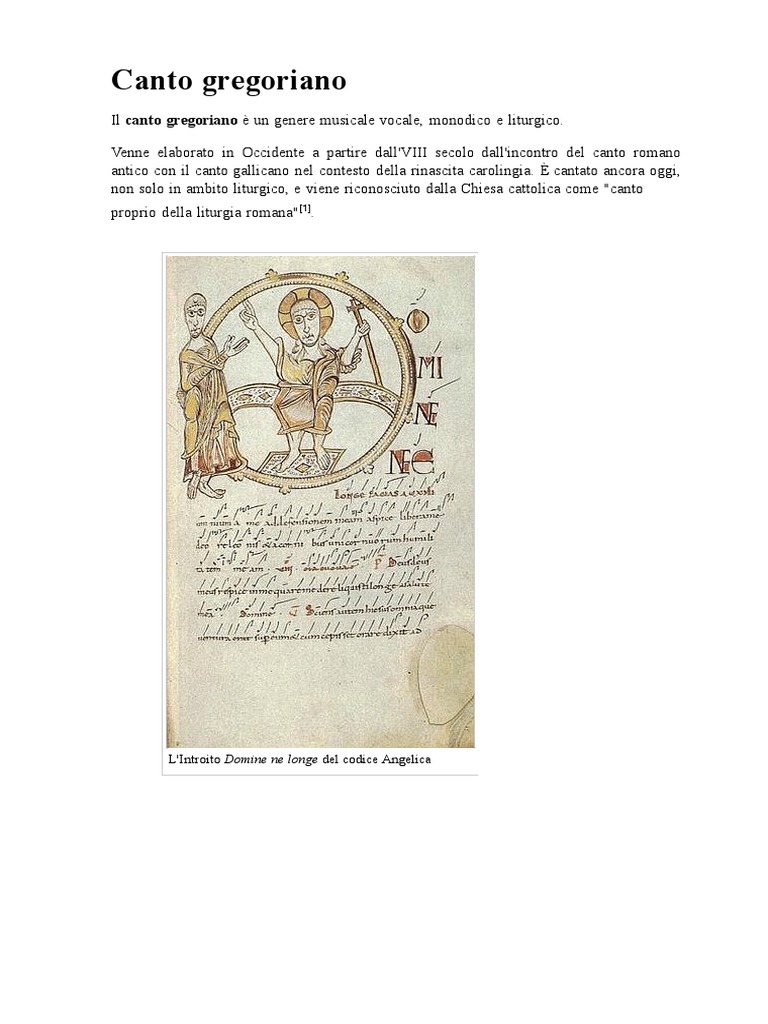 Canto gregoriano
Il canto gregoriano è un genere musicale vocale, monodico e liturgico.
Venne elaborato in Occidente a partire dall'VIII secolo dall'incontro del canto romano
antico con il canto gallicano nel contesto della rinascita carolingia. È cantato ancora oggi,
non solo in ambito liturgico, e viene riconosciuto dalla Chiesa cattolica come "canto
proprio della liturgia romana"[1].
O
MI
NE
NE
LONGE FACIAS A
me ad defensionem meam aspice libera me
deo re leo nis & a cor ni bus uni cor nuo rum humili
ta tem me am
Deus deus
meus respice in me quare me dereliquisti longe a salute
mea Domine
ventura erant super eum & cum cepisset orare dixit ad
L'Introito Domine ne longe del codice Angelica